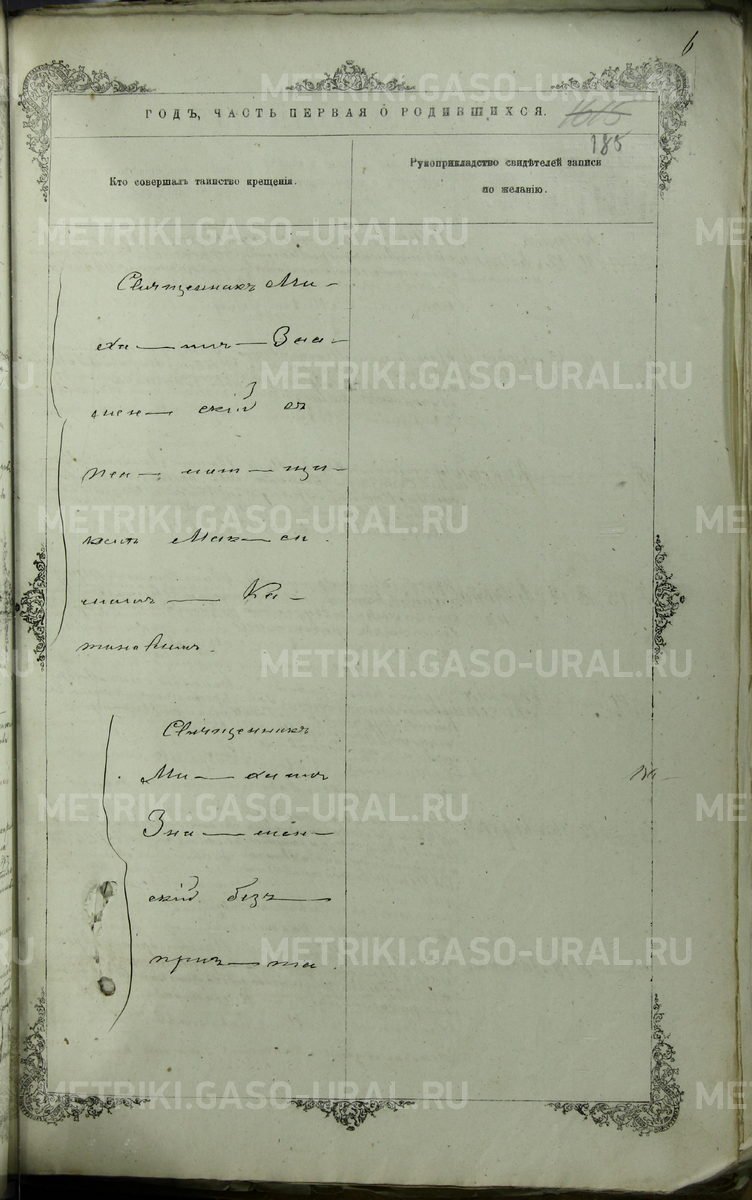 6
ГОДЪ, ЧАСТЬ ПЕРВАЯ О РОДИВШИХСЯ.
1615
185
Кто совершалъ таинство крещенія.
Рукоприкладство свидѣтелей записи
по желанію.
Священникъ Ми-
ха — илъ — Зна-
мен — скій съ
пса — лом — щи-
комъ Мак — си
момъ — Ка-
тиновымъ.
Священникъ
Ми — хаилъ
Зна — мен-
скій безъ —
прич — та.
METRIKI.GASO-URAL.RU